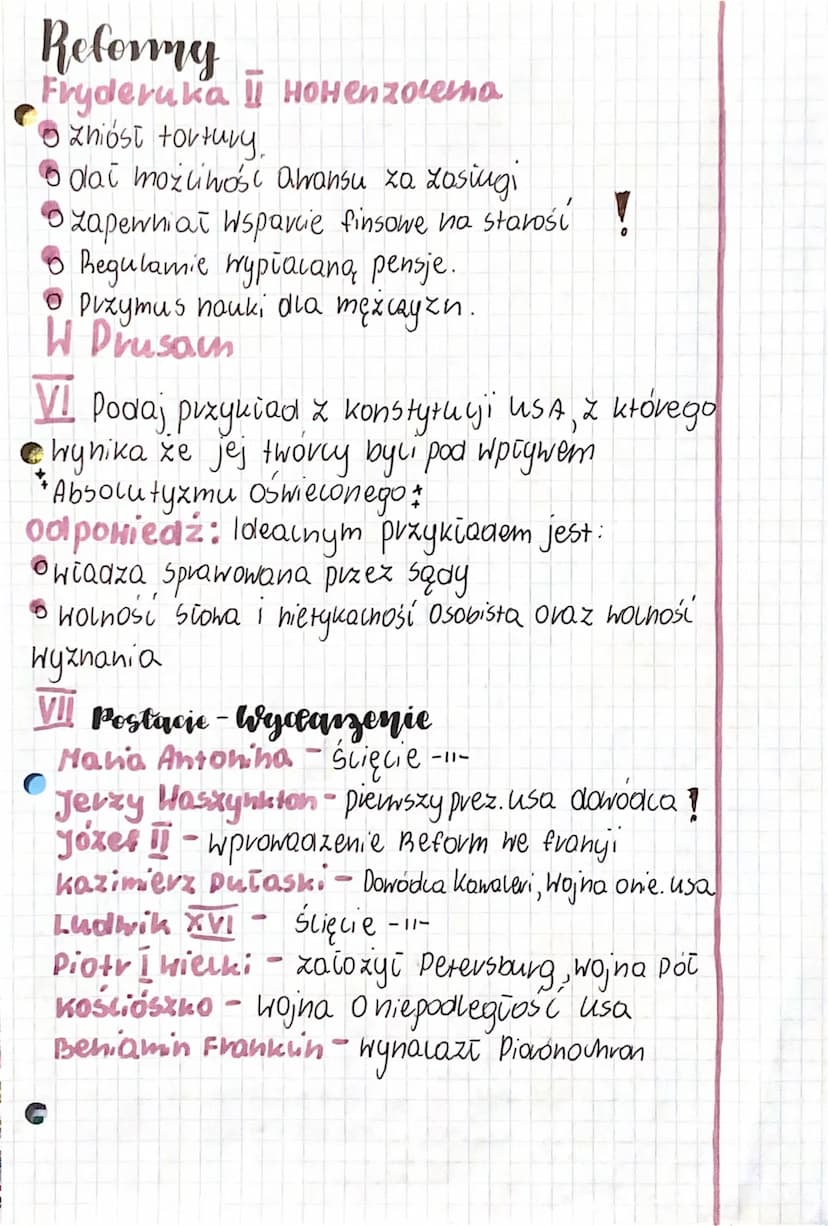 Reformy
Fryderuka II Hohenzolerna
zniósł tortury.
dał możliwość awansu za zasługi
zapewniał wsparcie finsowe na starość !
Regularnie wypłacaną pensje.
Przymus nauki dla mężczyzn.
W Prusach
VI Podaj przykład z konstytucji USA, z którego
wynika że jej twórcy byli pod wpływem
Absolutyzmu Oświeconego:
odpowiedź: Idealnym przykładem jest:
władza sprawowana przez sądy
wolność słowa i nietykalność osobista oraz wolność
wyznania
VII Postacie - Wydarzenie
Maria Antonina - ścięcie -11-
Jerzy Waszynkton - pierwszy prez. usa dowódca !
Józef II - wprowadzenie Reform we francji
Kazimierz Pułaski - Dowódca Kawaleri, Wojna o nie. usa
Ludwik XVI - ścięcie -11-
Piotr I wielki - założył Petersburg, wojna pół
Kośćiószko - wojna o niepodległość usa
Beniamin Franklin - wynalazł Piorónochron